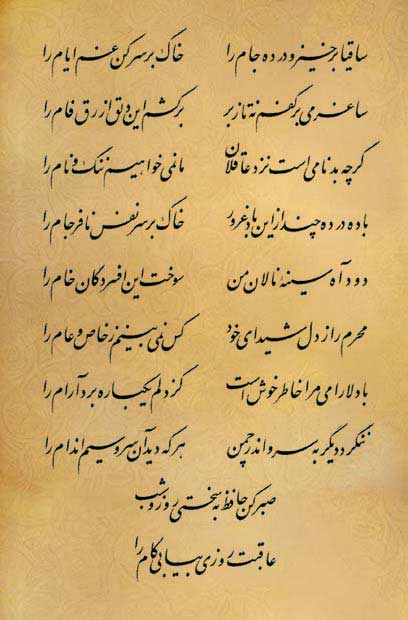 ساقیا برخیز و درده جام را
خاک بر سر کن غم ایام را
ساغر می بر کفم نه تا ز بر
برکشم این دلق ازرق فام را
گرچه بدنامی است نزد عاقلان
ما نمی خواهیم ننگ و نام را
باده درده چند از این باد غرور
خاک بر سر نفس نافرجام را
دود آه سینهٔ نالان من
سوخت این افسردگان خام را
محرم راز دل شیدای خود
کس نمی بینم ز خاص و عام را
با دلارامی مرا خاطر خوش است
کز دلم یکباره برد آرام را
ننگرد دیگر به سرو اندر چمن
هر که دید آن سرو سیم اندام را
صبر کن حافظ به سختی روز و شب
عاقبت روزی بیابی کام را